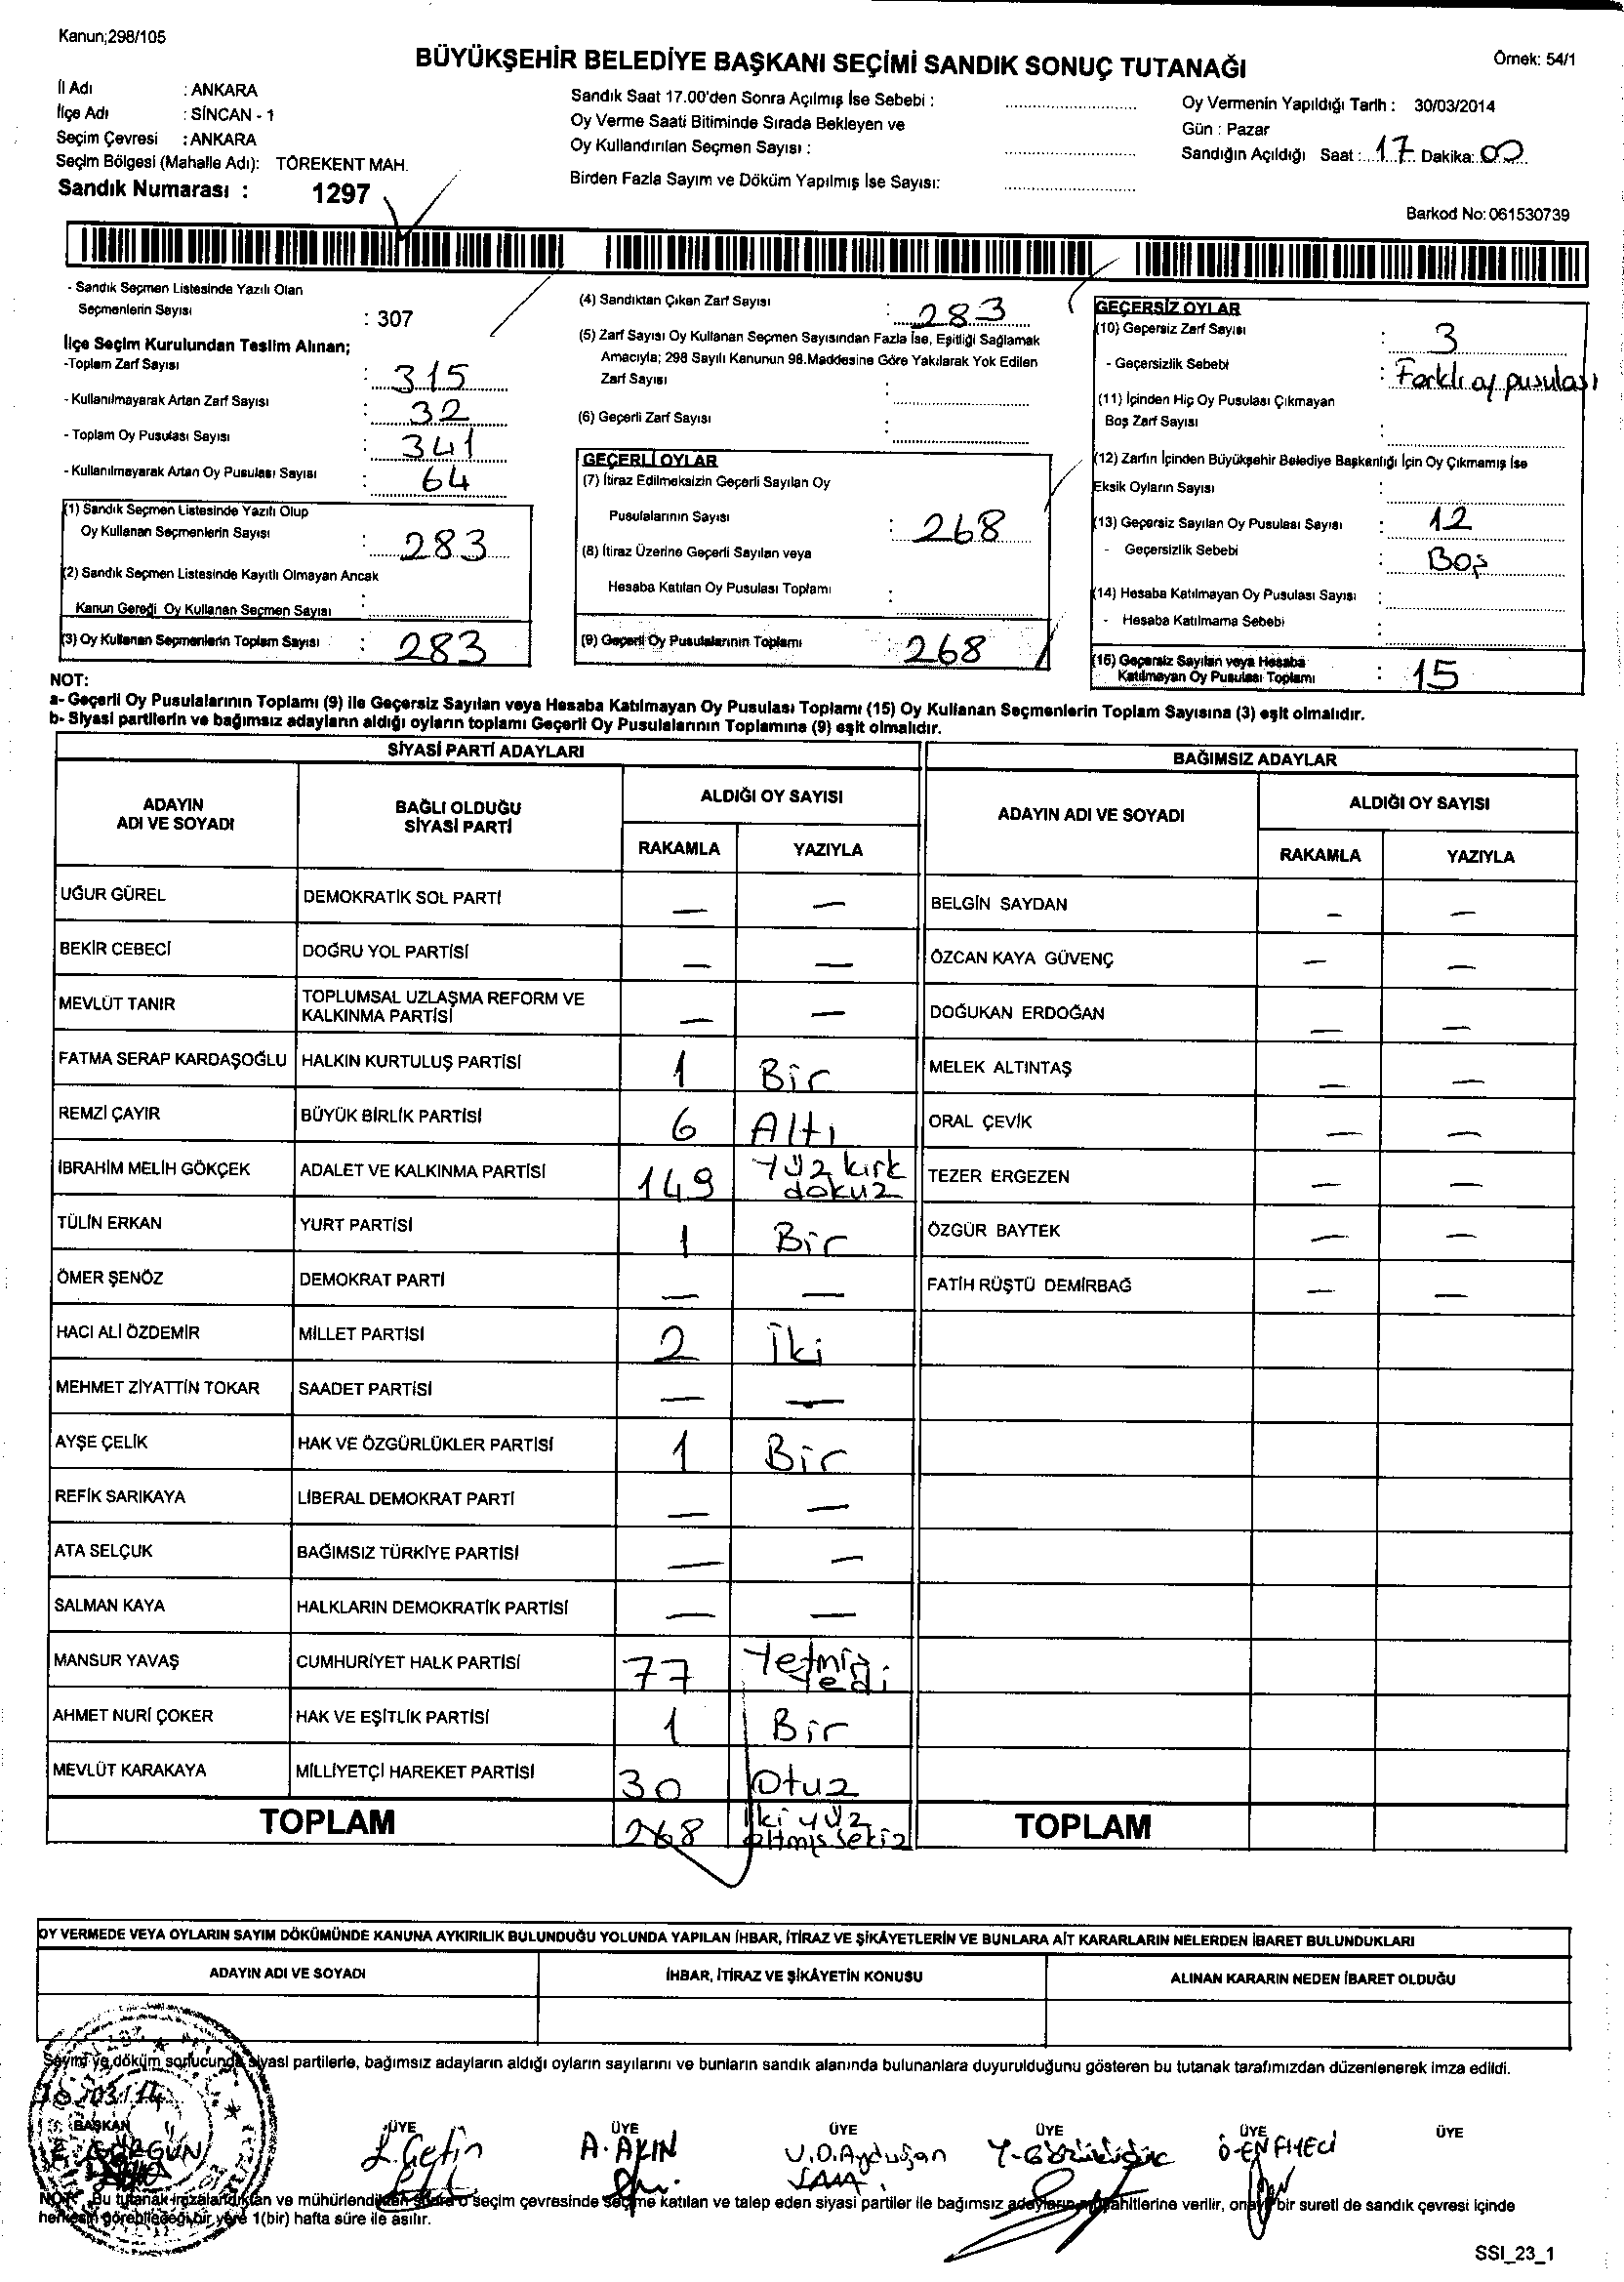 Kanun;298/105
BÜYÜKŞEHİR BELEDİYE BAŞKANI SEÇİMİ SANDIK SONUÇ TUTANAĞI
Örnek: 54/1
İl Adı : ANKARA
İlçe Adı : SİNCAN - 1
Seçim Çevresi : ANKARA
Seçim Bölgesi (Mahalle Adı): TÖREKENT MAH.
Sandık Numarası : 1297
Sandık Saat 17.00'den Sonra Açılmış İse Sebebi :
Oy Verme Saati Bitiminde Sırada Bekleyen ve
Oy Kullandırılan Seçmen Sayısı :
Birden Fazla Sayım ve Döküm Yapılmış İse Sayısı:
Oy Vermenin Yapıldığı Tarih : 30/03/2014
Gün : Pazar
Sandığın Açıldığı Saat : 17 Dakika: 00
Barkod No: 061530739
- Sandık Seçmen Listesinde Yazılı Olan
Seçmenlerin Sayısı : 307
İlçe Seçim Kurulundan Teslim Alınan;
-Toplam Zarf Sayısı : 315
- Kullanılmayarak Artan Zarf Sayısı : 32
- Toplam Oy Pusulası Sayısı : 341
- Kullanılmayarak Artan Oy Pusulası Sayısı : 64
(1) Sandık Seçmen Listesinde Yazılı Olup
Oy Kullanan Seçmenlerin Sayısı : 283
(2) Sandık Seçmen Listesinde Kayıtlı Olmayan Ancak
Kanun Gereği Oy Kullanan Seçmen Sayısı :
(3) Oy Kullanan Seçmenlerin Toplam Sayısı : 283
(4) Sandıktan Çıkan Zarf Sayısı : 283
(5) Zarf Sayısı Oy Kullanan Seçmen Sayısından Fazla İse, Eşitliği Sağlamak
Amacıyla; 298 Sayılı Kanunun 98.Maddesine Göre Yakılarak Yok Edilen
Zarf Sayısı :
(6) Geçerli Zarf Sayısı :
GEÇERLİ OYLAR
(7) İtiraz Edilmeksizin Geçerli Sayılan Oy
Pusulalarının Sayısı : 268
(8) İtiraz Üzerine Geçerli Sayılan veya
Hesaba Katılan Oy Pusulası Toplamı :
(9) Geçerli Oy Pusulalarının Toplamı : 268
GEÇERSİZ OYLAR
(10) Geçersiz Zarf Sayısı : 3
- Geçersizlik Sebebi : Farklı oy pusulası
(11) İçinden Hiç Oy Pusulası Çıkmayan
Boş Zarf Sayısı :
(12) Zarfın İçinden Büyükşehir Belediye Başkanlığı İçin Oy Çıkmamış İse
Eksik Oyların Sayısı :
(13) Geçersiz Sayılan Oy Pusulası Sayısı : 12
- Geçersizlik Sebebi : Boş
(14) Hesaba Katılmayan Oy Pusulası Sayısı :
- Hesaba Katılmama Sebebi :
(15) Geçersiz Sayılan veya Hesaba
Katılmayan Oy Pusulası Toplamı : 15
NOT:
a- Geçerli Oy Pusulalarının Toplamı (9) ile Geçersiz Sayılan veya Hesaba Katılmayan Oy Pusulası Toplamı (15) Oy Kullanan Seçmenlerin Toplam Sayısına (3) eşit olmalıdır.
b- Siyasi partilerin ve bağımsız adayların aldığı oyların toplamı Geçerli Oy Pusulalarının Toplamına (9) eşit olmalıdır.
SİYASİ PARTİ ADAYLARI
ADAYIN ADI VE SOYADI
BAĞLI OLDUĞU SİYASİ PARTİ
ALDIĞI OY SAYISI
RAKAMLA YAZIYLA
UĞUR GÜREL DEMOKRATİK SOL PARTİ — —
BEKİR CEBECİ DOĞRU YOL PARTİSİ — —
MEVLÜT TANIR TOPLUMSAL UZLAŞMA REFORM VE KALKINMA PARTİSİ — —
FATMA SERAP KARDAŞOĞLU HALKIN KURTULUŞ PARTİSİ 1 Bir
REMZİ ÇAYIR BÜYÜK BİRLİK PARTİSİ 6 Altı
İBRAHİM MELİH GÖKÇEK ADALET VE KALKINMA PARTİSİ 149 Yüz kırk dokuz
TÜLİN ERKAN YURT PARTİSİ 1 Bir
ÖMER ŞENÖZ DEMOKRAT PARTİ — —
HACI ALİ ÖZDEMİR MİLLET PARTİSİ 2 İki
MEHMET ZİYATTİN TOKAR SAADET PARTİSİ — —
AYŞE ÇELİK HAK VE ÖZGÜRLÜKLER PARTİSİ 1 Bir
REFİK SARIKAYA LİBERAL DEMOKRAT PARTİ — —
ATA SELÇUK BAĞIMSIZ TÜRKİYE PARTİSİ — —
SALMAN KAYA HALKLARIN DEMOKRATİK PARTİSİ — —
MANSUR YAVAŞ CUMHURİYET HALK PARTİSİ 77 Yetmiş Yedi
AHMET NURİ ÇOKER HAK VE EŞİTLİK PARTİSİ 1 Bir
MEVLÜT KARAKAYA MİLLİYETÇİ HAREKET PARTİSİ 30 Otuz
TOPLAM 268 İki yüz altmış sekiz
BAĞIMSIZ ADAYLAR
ADAYIN ADI VE SOYADI
ALDIĞI OY SAYISI
RAKAMLA YAZIYLA
BELGİN SAYDAN — —
ÖZCAN KAYA GÜVENÇ — —
DOĞUKAN ERDOĞAN — —
MELEK ALTINTAŞ — —
ORAL ÇEVİK — —
TEZER ERGEZEN — —
ÖZGÜR BAYTEK — —
FATİH RÜŞTÜ DEMİRBAĞ — —
TOPLAM
OY VERMEDE VEYA OYLARIN SAYIM DÖKÜMÜNDE KANUNA AYKIRILIK BULUNDUĞU YOLUNDA YAPILAN İHBAR, İTİRAZ VE ŞİKÂYETLERİN VE BUNLARA AİT KARARLARIN NELERDEN İBARET BULUNDUKLARI
ADAYIN ADI VE SOYADI
İHBAR, İTİRAZ VE ŞİKÂYETİN KONUSU
ALINAN KARARIN NEDEN İBARET OLDUĞU
Sayım ve döküm sonucunda siyasi partilerle, bağımsız adayların aldığı oyların sayılarını ve bunların sandık alanında bulunanlara duyurulduğunu gösteren bu tutanak tarafımızdan düzenlenerek imza edildi.
BAŞKAN ÜYE ÜYE ÜYE ÜYE ÜYE ÜYE
A. AKIN
NOT: Bu tutanak imzalandıktan ve mühürlendikten sonra o seçim çevresinde seçime katılan ve talep eden siyasi partiler ile bağımsız adayların müşahitlerine verilir, onaylı bir sureti de sandık çevresi içinde
herkesin görebileceği bir yere 1(bir) hafta süre ile asılır.
SSI_23_1